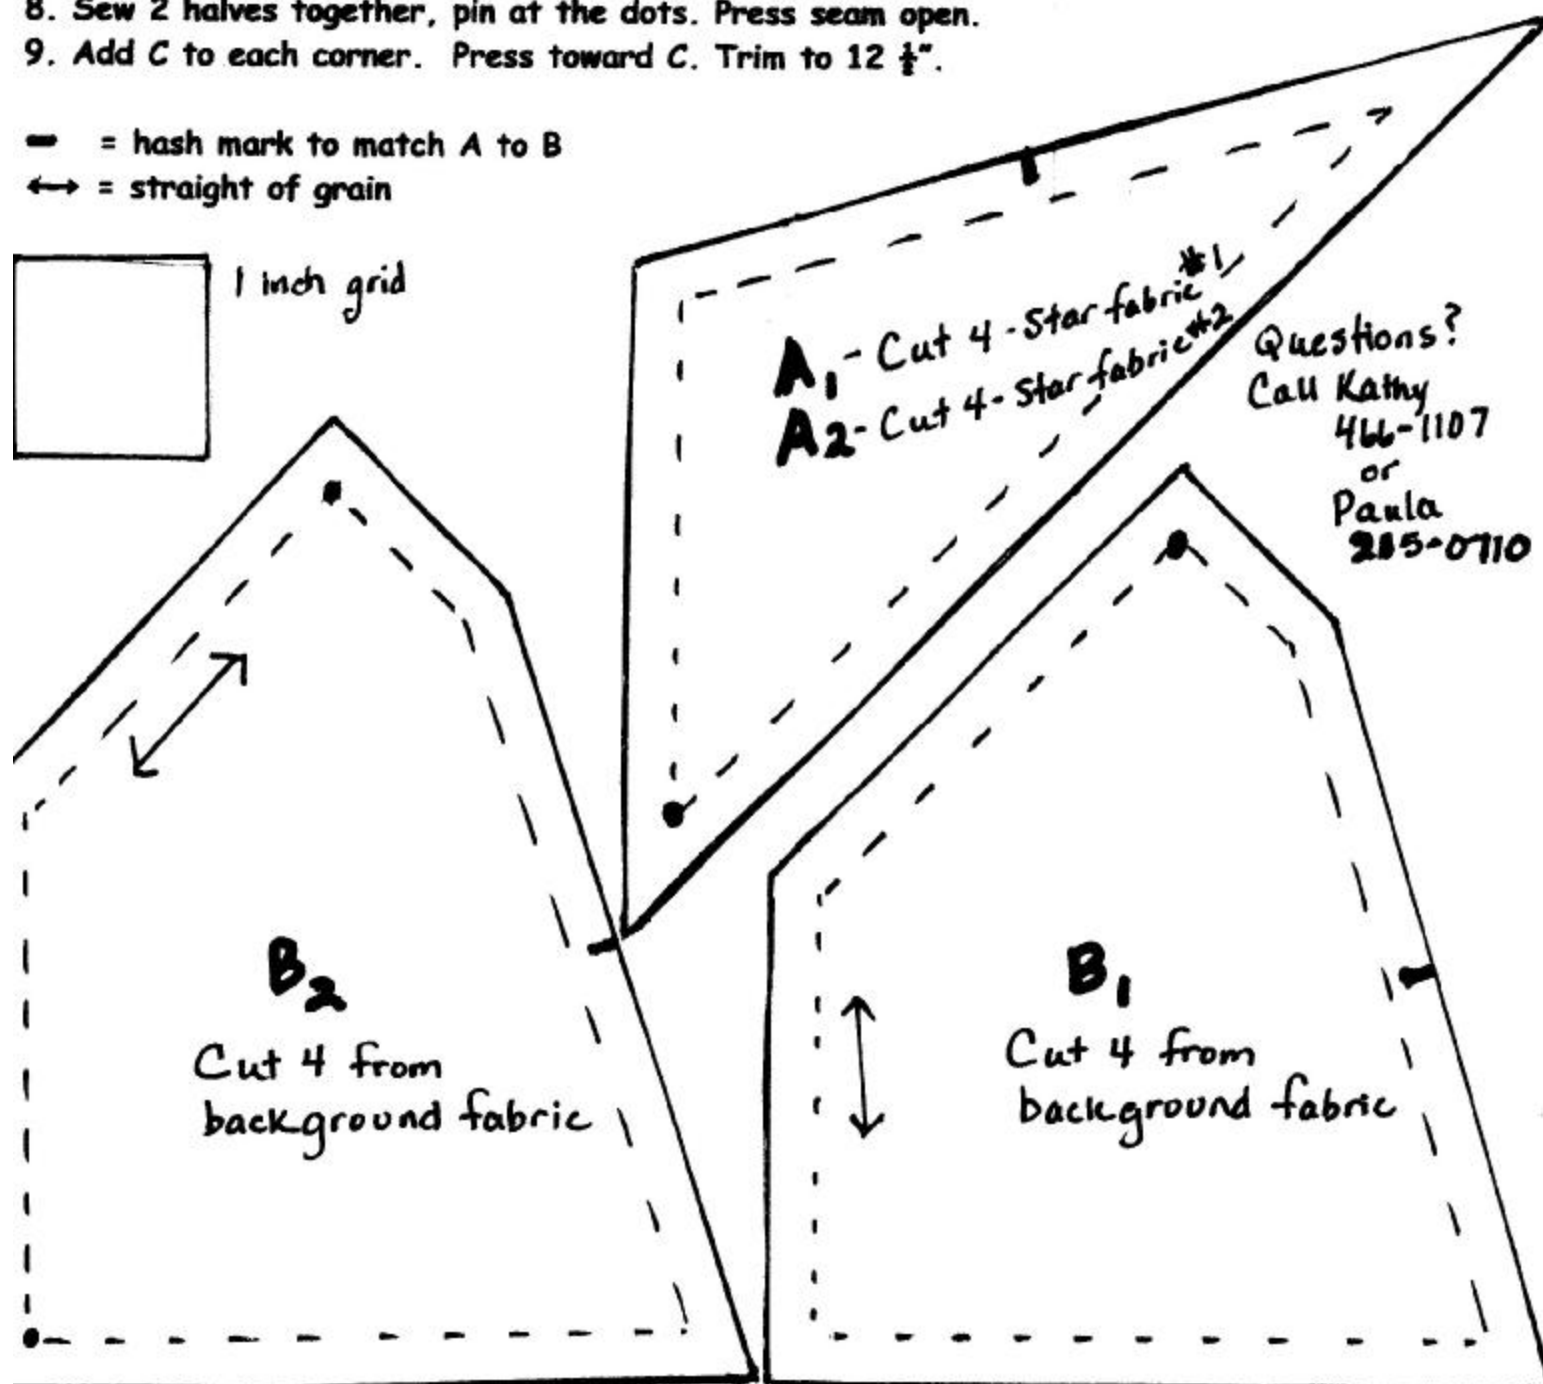 8. Sew 2 halves together, pin at the dots. Press seam open.
9. Add C to each corner. Press toward C. Trim to 12 ½".
= hash mark to match A to B
↔ = straight of grain
1 inch grid
A1 - Cut 4 - Star fabric #1
A2 - Cut 4 - Star fabric #2
Questions?
Call Kathy
466-1107
or
Paula
285-0710
B2
Cut 4 from
background fabric
B1
Cut 4 from
background fabric